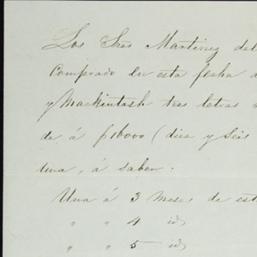 Los Sres Martinez del
Comprado en esta fecha a
y Mackintosh tres letras
de á $16000 (diez y Seis
una, á saber.
Una á 3 meses de est
" " 4 id
" " 5 id